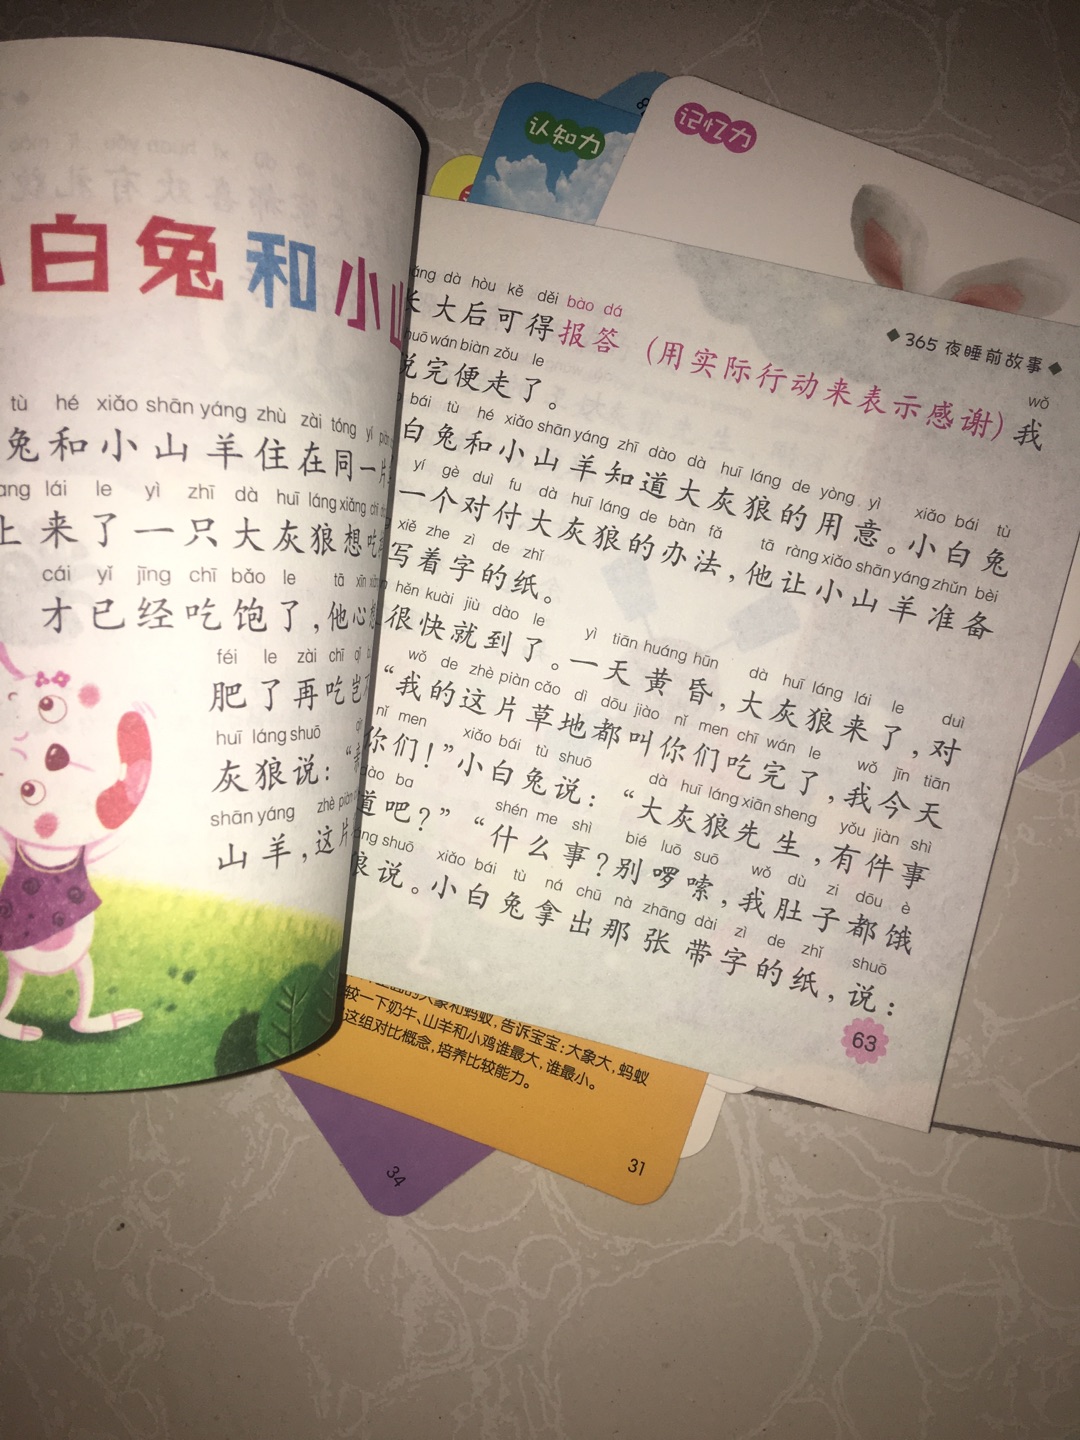 白兔和小山
tù hé xiǎo shān yáng zhù zài tóng yí
兔和小山羊住在同一片
lái le yì zhī dà huī láng xiǎng chī
上来了一只大灰狼想吃
cái yǐ jīng chī bǎo le tā xīn
才已经吃饱了,他心想
féi le zài chī qǐ
肥了再吃岂
huī láng shuō
灰狼说:“亲
shān yáng zhè piàn
山羊,这片
◆365夜睡前故事◆
áng dà hòu kě děi bào dá wǒ
长大后可得报答(用实际行动来表示感谢)我
shuō wán biàn zǒu le
说完便走了。
bái tù hé xiǎo shān yáng zhī dào dà huī láng de yòng yì xiǎo bái tù
白兔和小山羊知道大灰狼的用意。小白兔
yí gè duì fu dà huī láng de bàn fǎ tā ràng xiǎo shān yáng zhǔn bèi
一个对付大灰狼的办法,他让小山羊准备
xiě zhe zì de zhǐ
写着字的纸。
hěn kuài jiù dào le yì tiān huáng hūn dà huī láng lái le duì
很快就到了。一天黄昏,大灰狼来了,对
wǒ de zhè piàn cǎo dì dōu jiào nǐ men chī wán le wǒ jīn tiān
“我的这片草地都叫你们吃完了,我今天
nǐ men xiǎo bái tù shuō dà huī láng xiān sheng yǒu jiàn shì
你们!”小白兔说:“大灰狼先生,有件事
dào ba shén me shì bié luō suō wǒ dù zi dōu è
道吧?”“什么事?别啰嗦,我肚子都饿
áng shuō xiǎo bái tù ná chū nà zhāng dài zì de zhǐ shuō
狼说。小白兔拿出那张带字的纸,说:
63
认知力
记忆力
8
大象和蚂蚁,告诉宝宝:大象大,蚂蚁
较一下奶牛、山羊和小鸡谁最大,谁最小。
这组对比概念,培养比较能力。
31
34